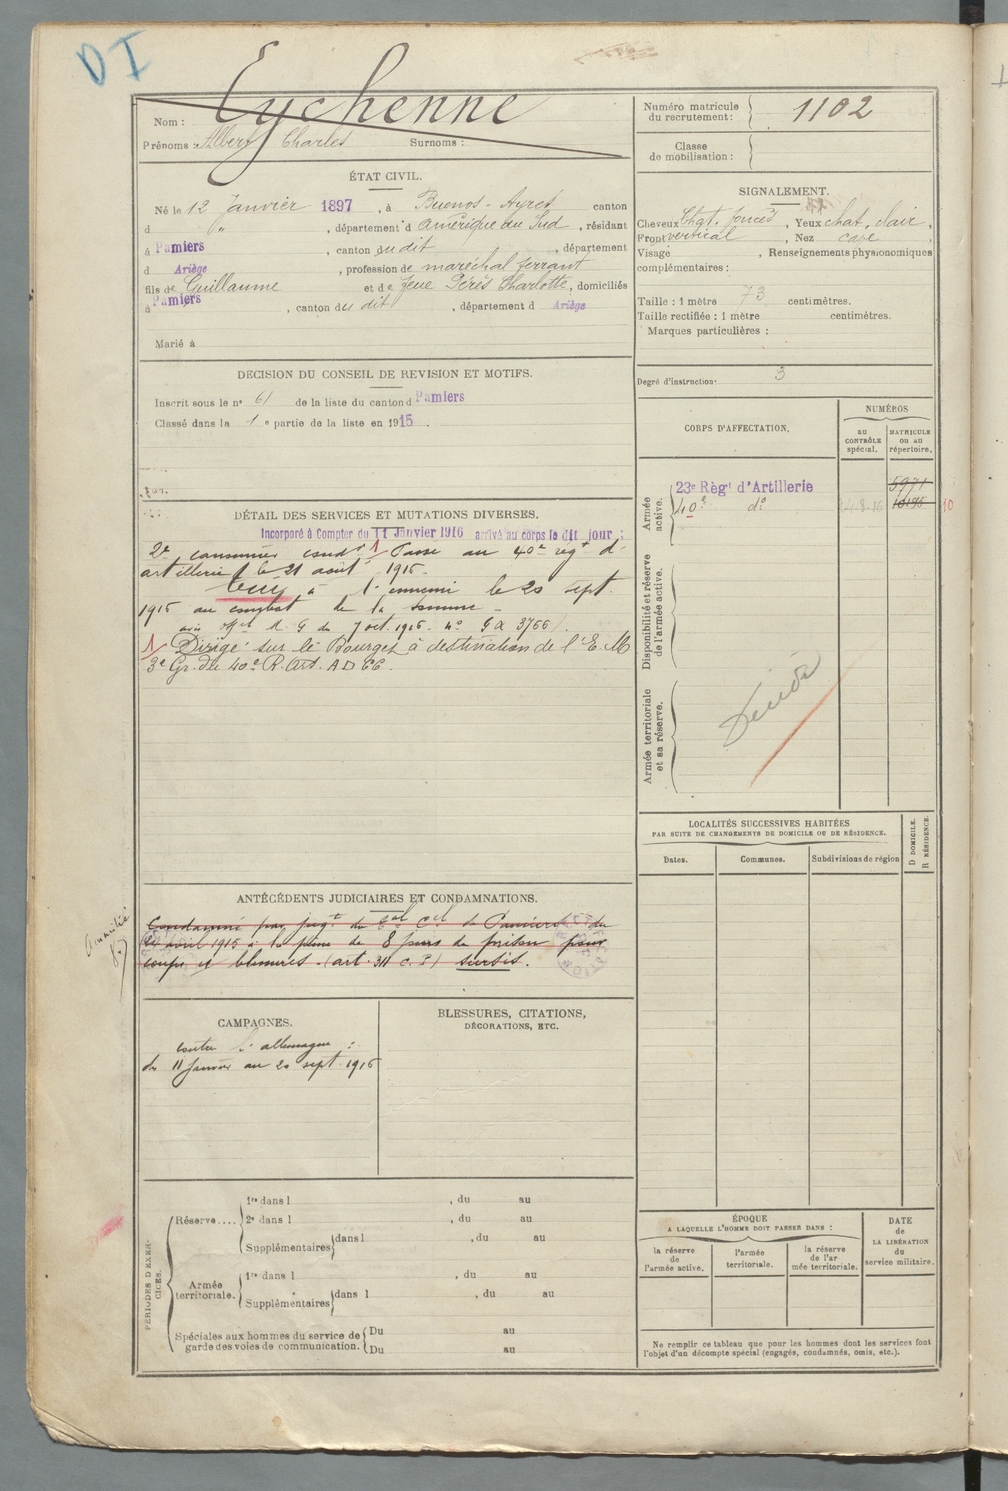 D I
Eychenne
Nom :
Prénoms : Albert Charles Surnoms :
ÉTAT CIVIL.
Né le 12 Janvier 1897, à Buenos-Ayres canton
d " , département d'Amérique du Sud, résidant
à Pamiers, canton dudit, département
d Ariège, profession de maréchal ferrant
fils de Guillaume et de feue Pérés Charlotte, domiciliés
à Pamiers, canton du dit, département d Ariège
Marié à
DECISION DU CONSEIL DE REVISION ET MOTIFS.
Inscrit sous le n° 61 de la liste du canton d Pamiers
Classé dans la 1e partie de la liste en 1915.
DÉTAIL DES SERVICES ET MUTATIONS DIVERSES.
Incorporé à Compter du 11 Janvier 1916 arrivé au corps le dit jour ;
2e canonnier condr 1 Passé au 40e regt d'
artillerie le 21 août 1916.
tué à l'ennemi le 20 sept.
1916 au combat de la Somme
avis du 7 oct. 1916. no 3766).
1/ Dirigé sur le Bourget à destination de l'E.M
3e Gr. du 40e R. Art. A D CC.
ANTÉCÉDENTS JUDICIAIRES ET CONDAMNATIONS.
Amnistié
Condamné par jugt du Cal Cel de Pamiers du
avril 1915 à la peine de 8 jours de prison pour
coups et blessures (art. 311 c. P) sursis.
CAMPAGNES.
contre l'allemagne :
du 11 Janvier au 20 sept. 1916
BLESSURES, CITATIONS,
DÉCORATIONS, ETC.
PÉRIODES D'EXER-
CICES.
Réserve.... 1re dans l , du au
2e dans l , du au
Supplémentaires dans l , du au
Armée
territoriale. 1re dans l , du au
Supplémentaires dans l , du au
Spéciales aux hommes du service de
garde des voies de communication. Du au
Du au
Numéro matricule
du recrutement : 1102
Classe
de mobilisation :
SIGNALEMENT.
Cheveux Chat. foncés, Yeux chat. clair,
Front vertical, Nez cave,
Visage , Renseignements physionomiques
complémentaires :
Taille : 1 mètre 73 centimètres.
Taille rectifiée : 1 mètre centimètres.
Marques particulières :
Degré d'instruction 3
CORPS D'AFFECTATION.
NUMÉROS
au
CONTRÔLE
spécial.
MATRICULE
ou au
répertoire.
Armée
active.
23e Régt d'Artillerie 5971
40e do 10196 10
Disponibilité et réserve
de l'armée active.
Armée territoriale
et sa réserve.
LOCALITÉS SUCCESSIVES HABITÉES
PAR SUITE DE CHANGEMENTS DE DOMICILE OU DE RÉSIDENCE.
D DOMICILE.
R RÉSIDENCE.
Dates. Communes. Subdivisions de région
ÉPOQUE
A LAQUELLE L'HOMME DOIT PASSER DANS :
la réserve
de
l'armée active.
l'armée
territoriale.
la réserve
de l'ar
mée territoriale.
DATE
de
LA LIBÉRATION
du
service militaire.
Ne remplir ce tableau que pour les hommes dont les services font
l'objet d'un décompte spécial (engagés, condamnés, omis, etc.).